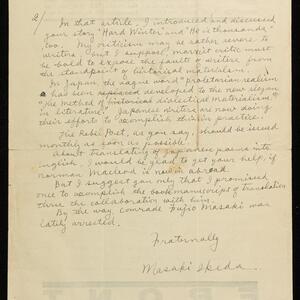 2/
In that article, I introduced and discussed
your story "Hard Winter" and "He is thousands"
too. My criticism may be rather severe to
writers. But I suppose, marxist critic must
be bold to expose the faults of writers from
the standpoint of historical materialism.
In Japan the vague word "proletarian realism"
has been developed to the new slogan
"the Method of dialectical materialism
in Literature". Japanese writers are now doing
their efforts to accomplish this in practice.
The Rebel Poet, as you say, should be issued
monthly as soon as possible.
About translating of Japanese poems into
english, I would be glad to get your help, if
Norman Macleod is now in abroad.
But I suggest you only that I promised
once to accomplish the book manuscript of translation
thru the collaboration with him.
By the way, Comrade Fujio Masaki was
lately arrested.
Fraternally
Masaki Ikeda.